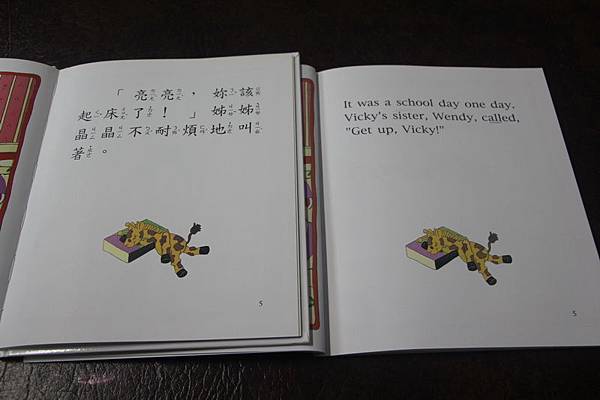 「亮亮，妳該
起床了！」姊姊
晶晶不耐煩地叫
著。
5
It was a school day one day.
Vicky's sister, Wendy, called,
"Get up, Vicky!"
5